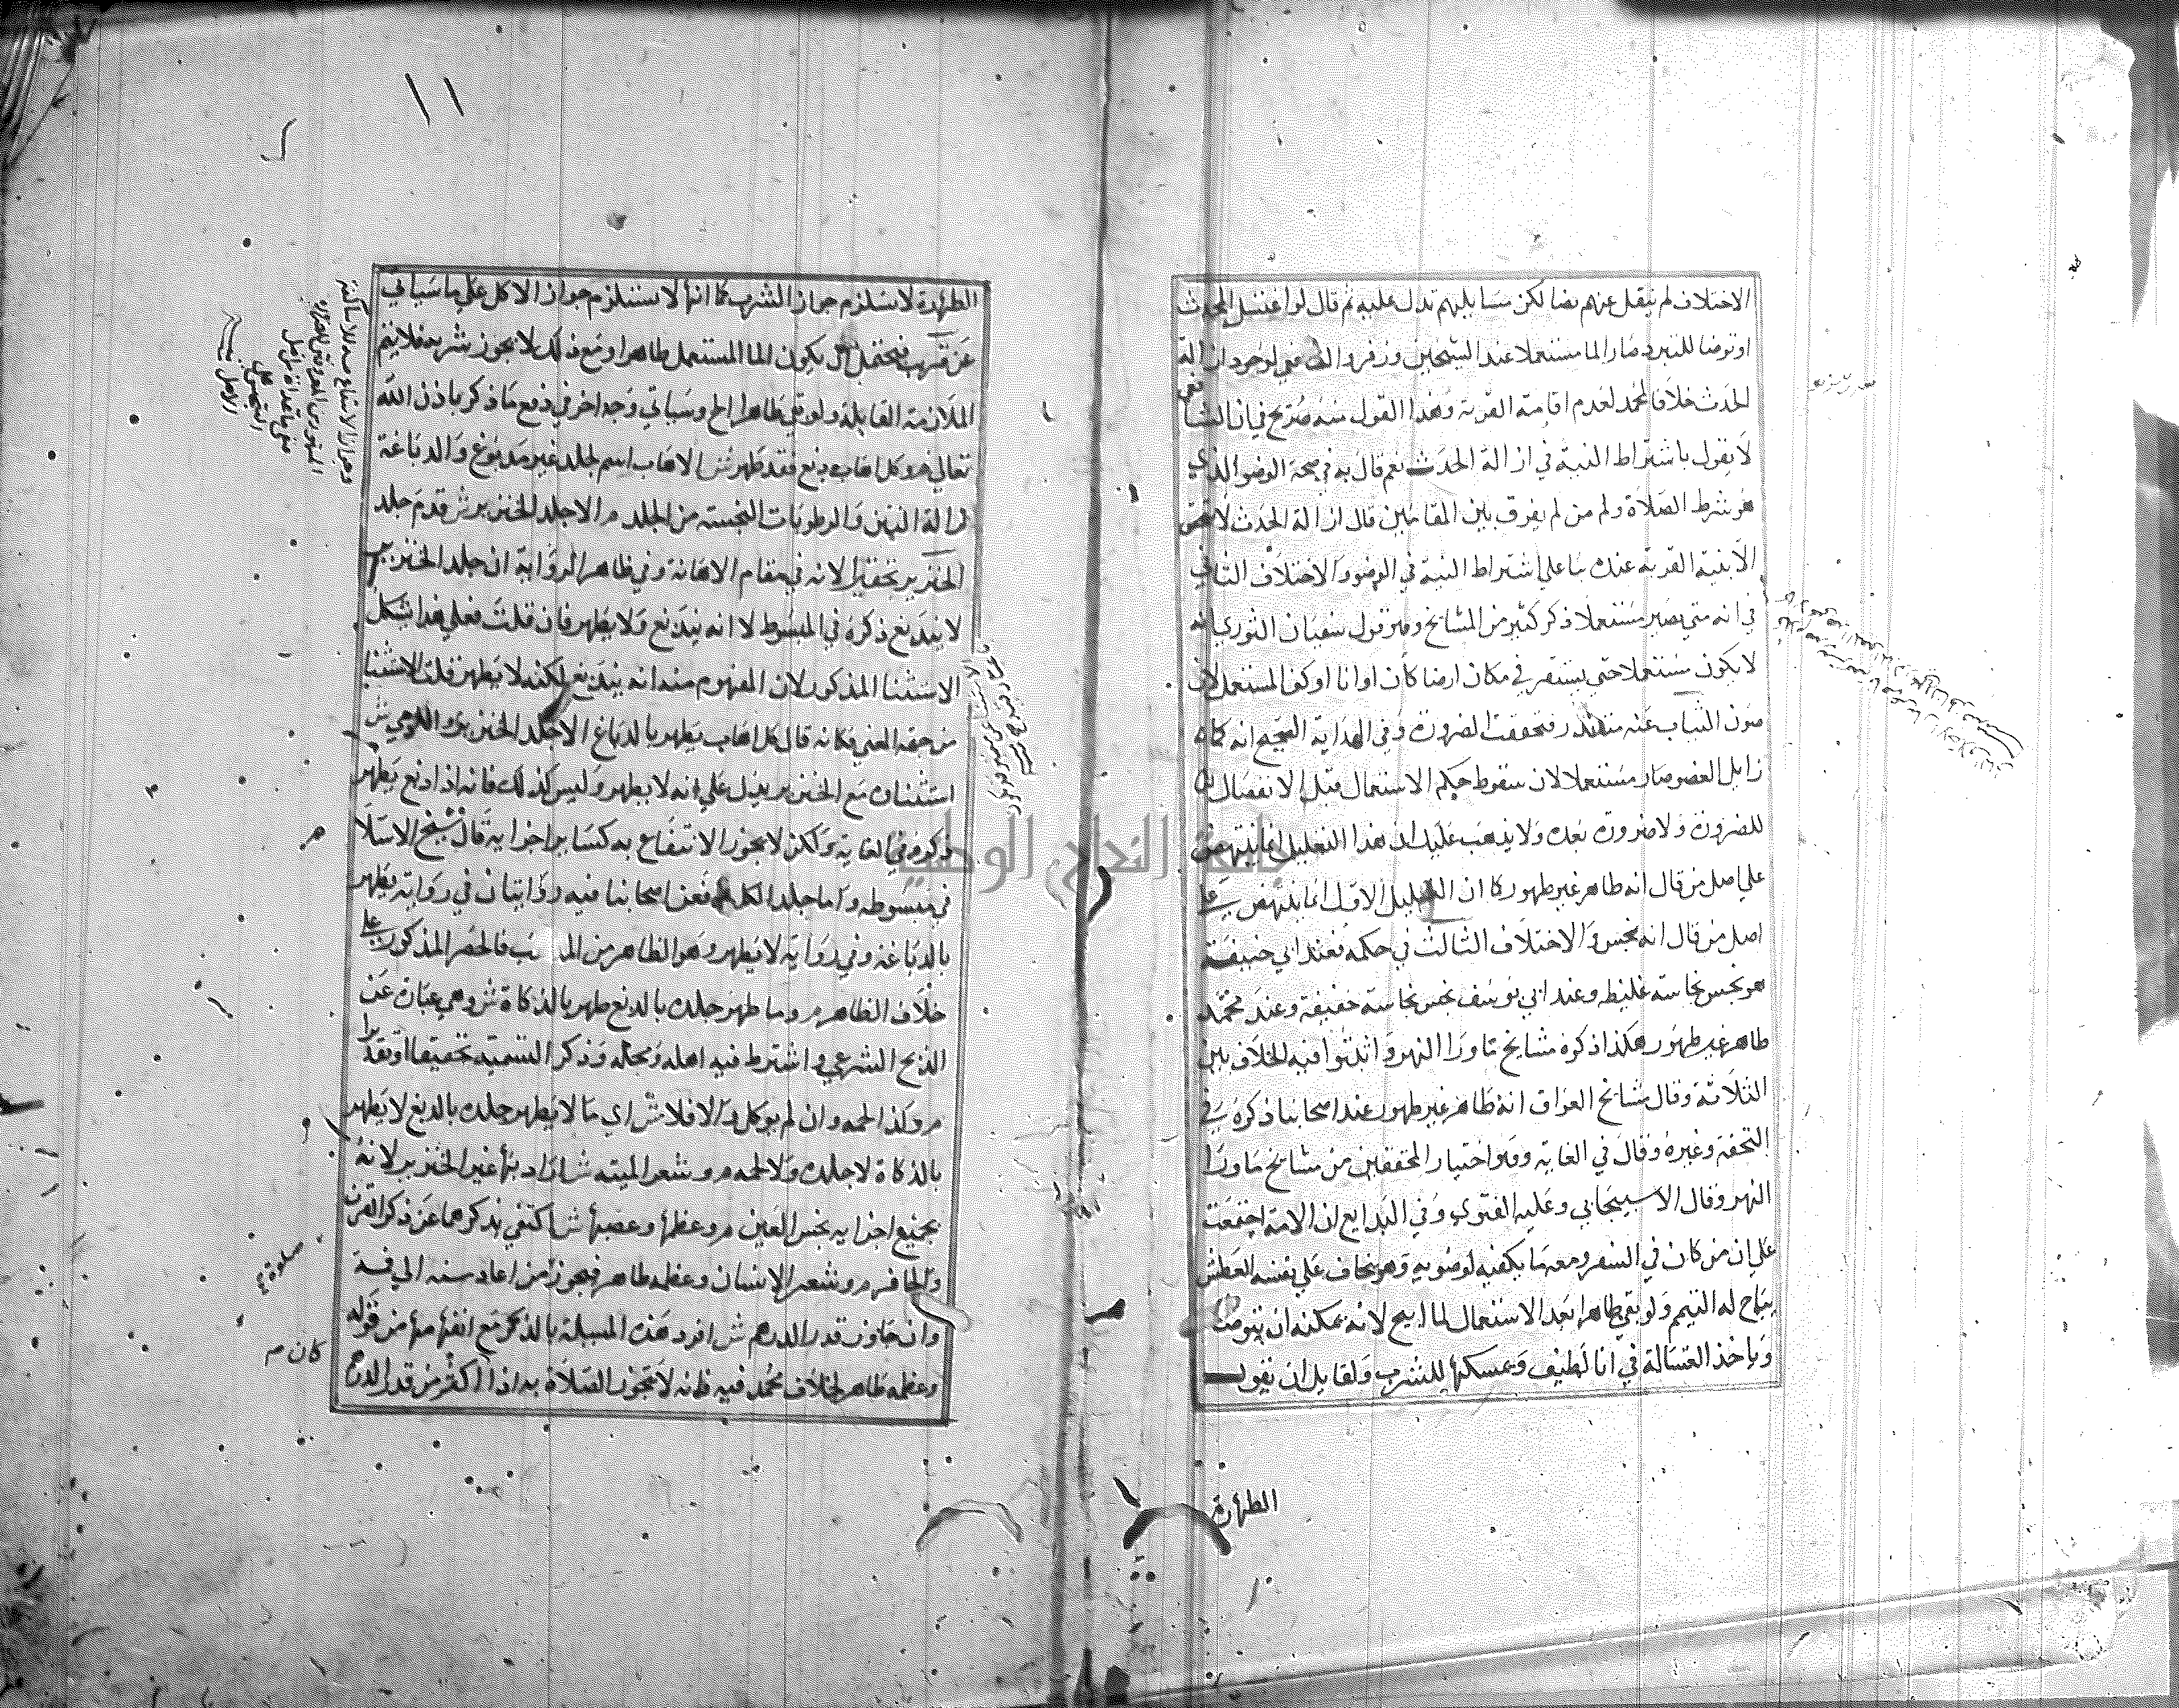 الاختلاف لم ينقل عنهم نصا لكن مسايلهم تدل عليه ثم قال لو اغتسل المحدث
او توضا للتبرد صار الما مستعملا عند الشيخين وزفر و الشافعي لوجود ازالة
الحدث خلافا لمحمد لعدم اقامة القربة وهذا القول منه صريح في ان الشافعي
لا يقول باشتراط النية في ازالة الحدث نعم قال به في صحة الوضو الذي
هو شرط الصلاة ولم من لم يفرق بين المقامين قال ازالة الحدث لا
الا بنية القربة عنده بنا علي اشتراط النية في الوضو والاختلاف الثاني
في انه متي يصير مستعملا ذكر كثير من المشايخ وهو قول سفيان الثوري انه
لا يكون مستعملا حتي يستقر في مكان ارضا كان او انا او كف المستعمل لان
صون الثياب عنه متعذر فتحققت الضرورة وفي الهداية الصحيح انه كما
زايل العضو صار مستعملا لان سقوط حكم الاستعمال قبل الانفصال
للضرورة ولا ضرورة بعده ولا يذهب عليك ان هذا التعليل انما ينتهض
علي اصل من قال انه طاهر غير طهور كا ان التعليل الاول انما ينتهض علي
اصل من قال انه نجس والاختلاف الثالث في حكمه فعند ابي حنيفة
هو نجس نجاسة غليظه وعند ابي يوسف نجس نجاسة خفيفة وعند محمد
طاهر غير طهور هكذا ذكره مشايخ ماورا النهر واثبتوا فيه الخلاف بين
الثلاثة وقال مشايخ العراق انه طاهر غير طهور عند اصحابنا ذكره في
التحفة وغيره وقال في الغاية وهو اختيار المحققين من مشايخ ماورا
النهر وقال الاسبيجابي وعليه الفتوي وفي البدايع ان الامة اجتمعت
علي ان من كان في السفر ومعه ما يكفيه لوضويه وهو يخاف علي نفسه العطش
يباح له التيمم ولو بقي طاهرا بعد الاستعمال لما ابيح لانه يمكنه ان يتوضا
وياخذ الغسالة في انا نظيف ويمسكها للشرب ولقايل ان يقول
الطهارة
١١
الطهارة لا تستلزم جواز الشرب كما انها لا تستلزم جواز الاكل علي ما سياتي
عن قريب فيحتمل ان يكون الما المستعمل طاهرا ومع ذلك لا يجوز شربه فلا يتم
الملازمة القايلة ولو بقي طاهرا الخ وسياتي وجه اخر في دفع ما ذكر باذن الله
تعالي م وكل اهاب دبغ فقد طهر ش الاهاب اسم لجلد غير مدبوغ والدباغة
ازالة النتن والرطوبات النجسة من الجلد م الا جلد الخنزير ش قدم جلد
الخنزير تحقيرا لانه في مقام الاهانة وفي ظاهر الرواية ان جلد الخنزير
لا يندبغ ذكره في المبسوط لا انه يندبغ ولا يطهر فان قلت فعلي هذا يشكل
الاستثنا المذكور لان المفهوم منه انه يندبغ لكنه لا يطهر قلت الاستثنا
من جهة المعني فكانه قال كل اهاب يطهر بالدباغ الا جلد الخنزير م والادمي ش
استثناه مع الخنزير يدل علي انه لا يطهر وليس كذلك فانه اذا دبغ يطهر
ذكره في الغاية ولكن لا يجوز الانتفاع به كساير اجزايه قال شيخ الاسلا
في مبسوطه واما جلد الكلب فعن اصحابنا فيه روايتان في رواية يطهر
بالدباغة وفي رواية لا يطهر وهو الظاهر من المذهب فالحصر المذكور علي
خلاف الظاهر م وما طهر جلده بالدبغ طهر بالذكاة ش وهي عبارة عن
الذبح الشرعي واشترط فيه اهله ومحله وذكر التسمية تحقيقا او تقديرا
م وكذا لحمه وان لم يوكل والا فلا ش اي ما لا يطهر جلده بالدبغ لا يطهر
بالذكاة لا جلده ولا لحمه م وشعر الميته ش اراد بها غير الخنزير لانه
بجميع اجزايه نجس العين م وعظمها وعصبها ش اكتفي بذكرهما عن ذكر القرن
والحافر م وشعر الانسان وعظمه طاهر فيجوز من اعاد سنه الي فمه
وان جاوز قدر الدرهم ش افرد هذه المسيلة بالذكر مع انفهامها من قوله
وعظمه طاهر لخلاف محمد فيه فانه لا تجوز الصلاة به اذا اكثر من قدر الدرهم
صلوته
كان م